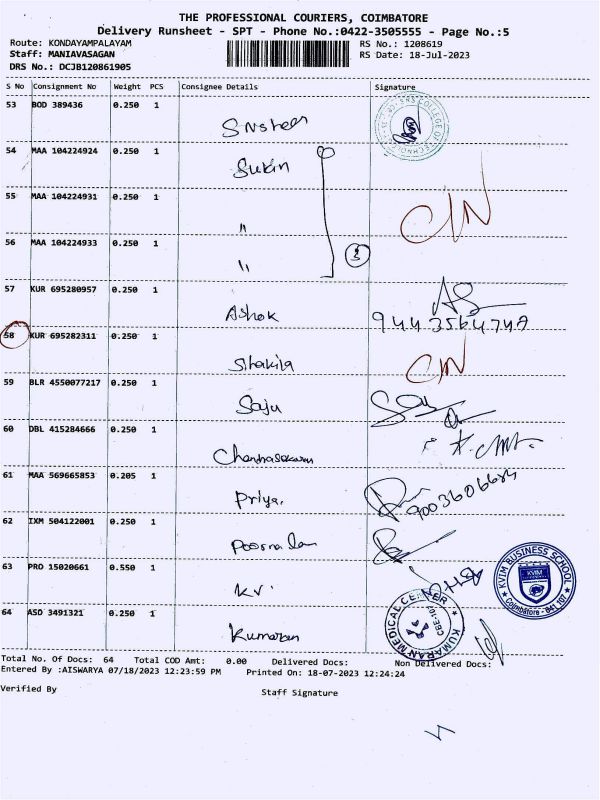 THE PROFESSIONAL COURIERS, COIMBATORE
Delivery Runsheet - SPT - Phone No.:0422-3505555 - Page No.:5
Route: KONDAYAMPALAYAM RS No.: 1208619
Staff: MANIAVASAGAN RS Date: 18-Jul-2023
DRS No.: DCJB120861905
S No Consignment No Weight PCS Consignee Details Signature
53 BOD 389436 0.250 1
54 MAA 104224924 0.250 1 Sukin
55 MAA 104224931 0.250 1 "
56 MAA 104224933 0.250 1 " 3
57 KUR 695280957 0.250 1 Ashok
58 KUR 695282311 0.250 1 Shakila
59 BLR 4550077217 0.250 1 Saju
60 DBL 415284666 0.250 1
61 MAA 569665853 0.205 1 Priya.
62 IXM 504122001 0.250 1
63 PRO 15020661 0.550 1 KV
KVIM BUSINESS SCHOOL
KVIM
Coimbatore - 641 107
64 ASD 3491321 0.250 1 Kumaran
KUMARAN MEDICAL CENTER
Total No. Of Docs: 64 Total COD Amt: 0.00 Delivered Docs: Non Delivered Docs:
Entered By :AISWARYA 07/18/2023 12:23:59 PM Printed On: 18-07-2023 12:24:24
Verified By Staff Signature